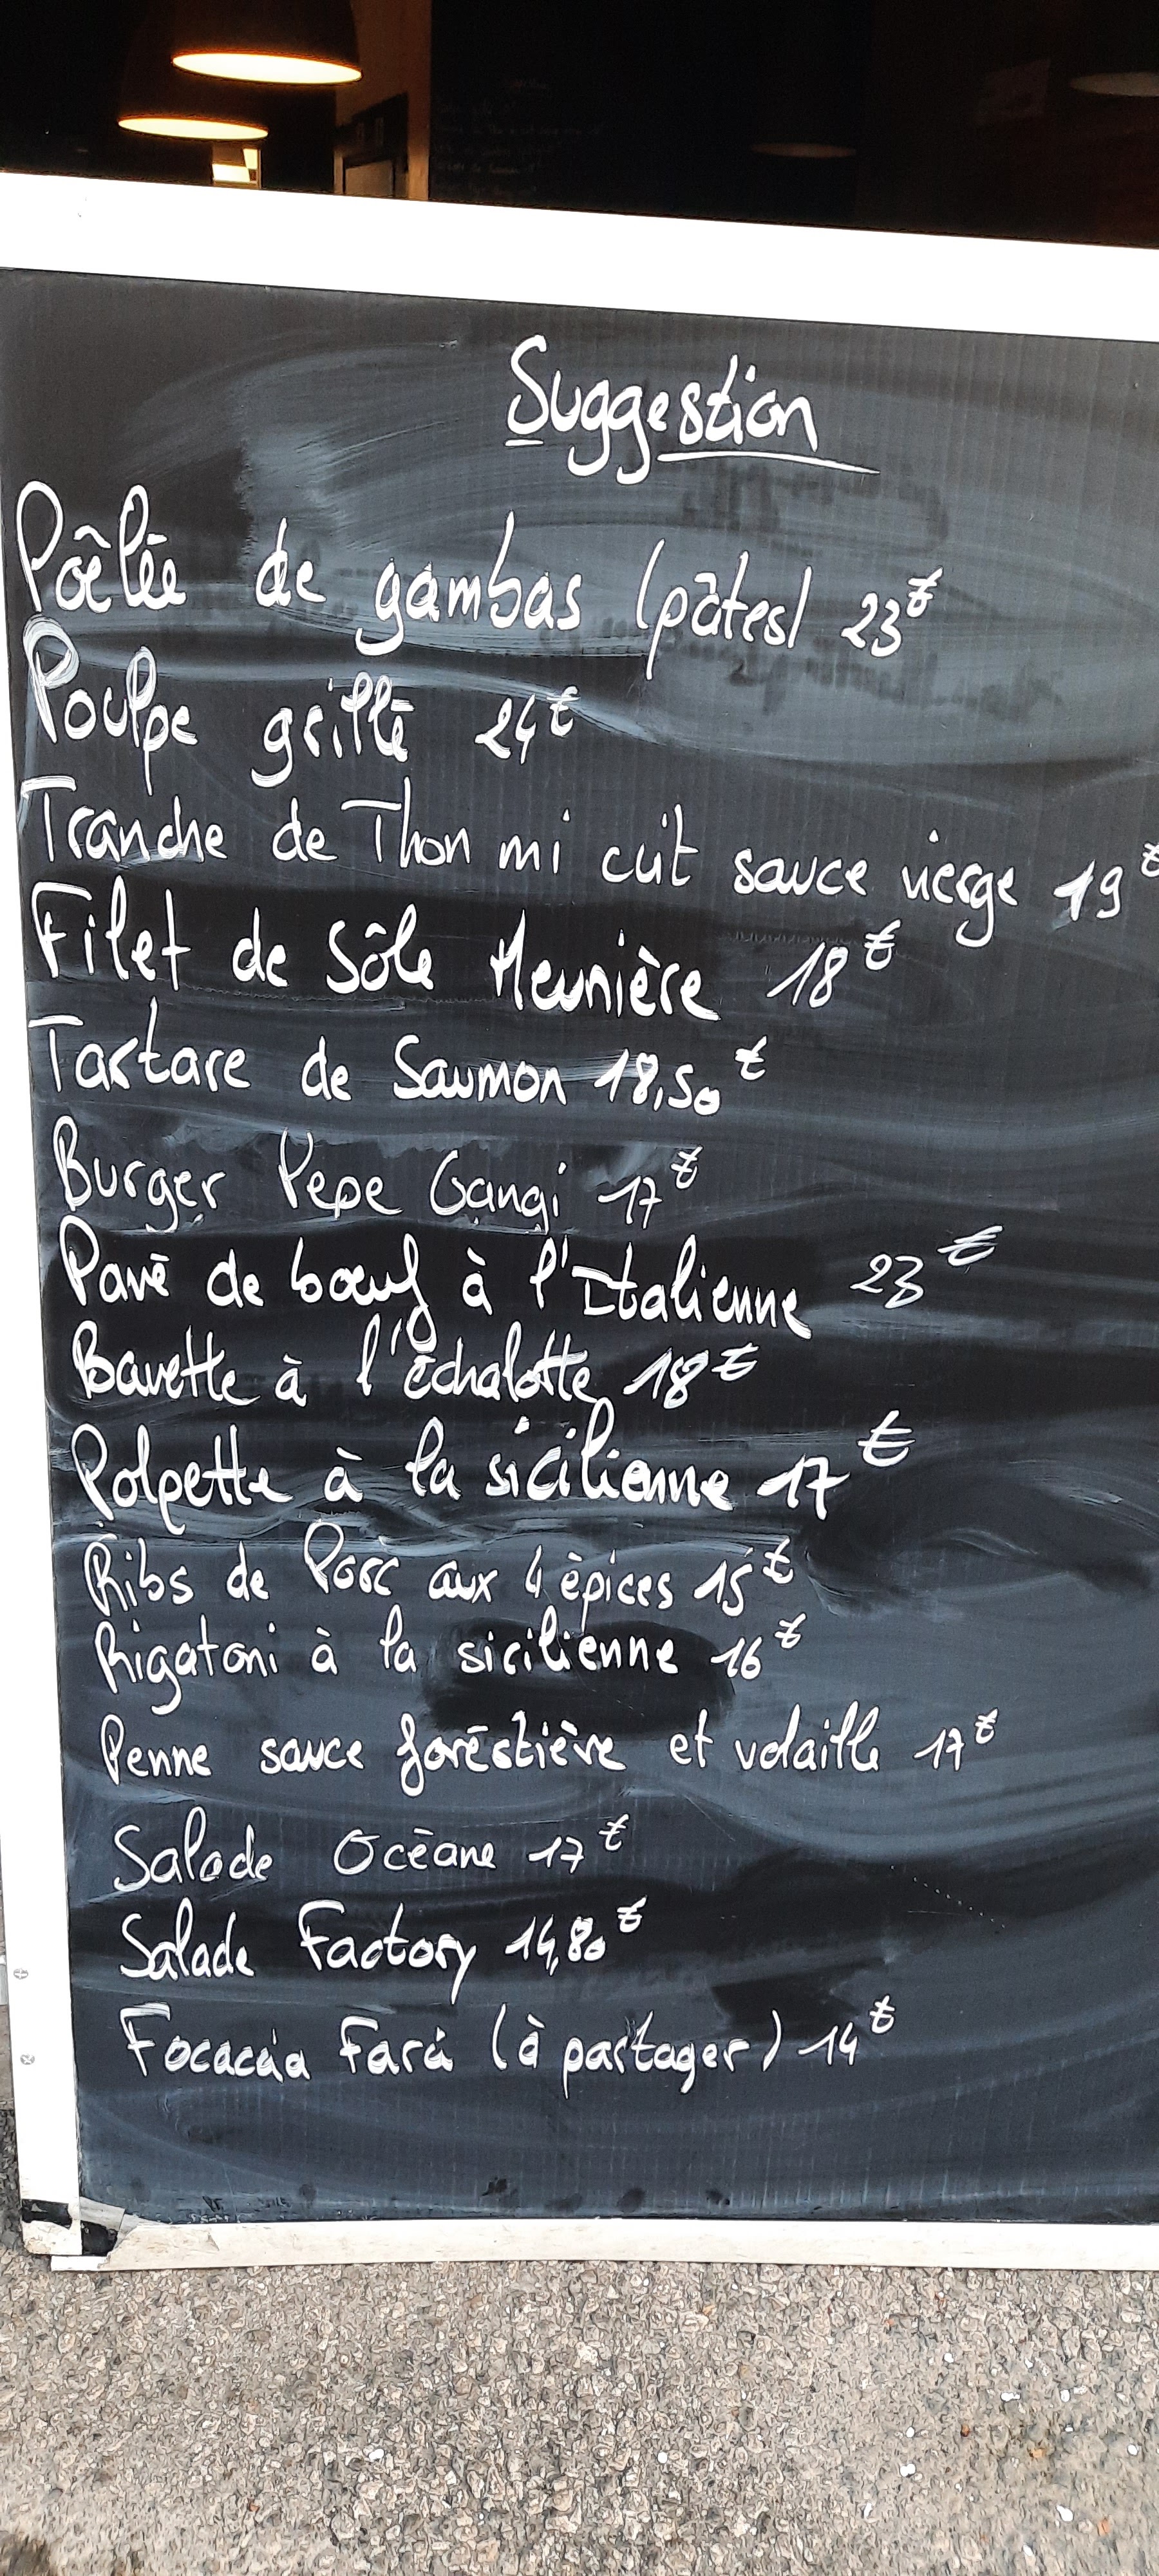 Suggestion
Poêlée de gambas (pâtes) 23€
Poulpe grillé 24€
Tranche de Thon mi cuit sauce vierge 19€
Filet de Sôle Meunière 18€
Tartare de Saumon 18,50€
Burger Pepe Gangi 17€
Pavé de bœuf à l'Italienne 23€
Bavette à l'échalotte 18€
Polpette à la sicilienne 17€
Ribs de Porc aux 4 épices 15€
Rigatoni à la sicilienne 16€
Penne sauce foréstière et volaille 17€
Salade Océane 17€
Salade Factory 14,80€
Focaccia Fara (à partager) 14€